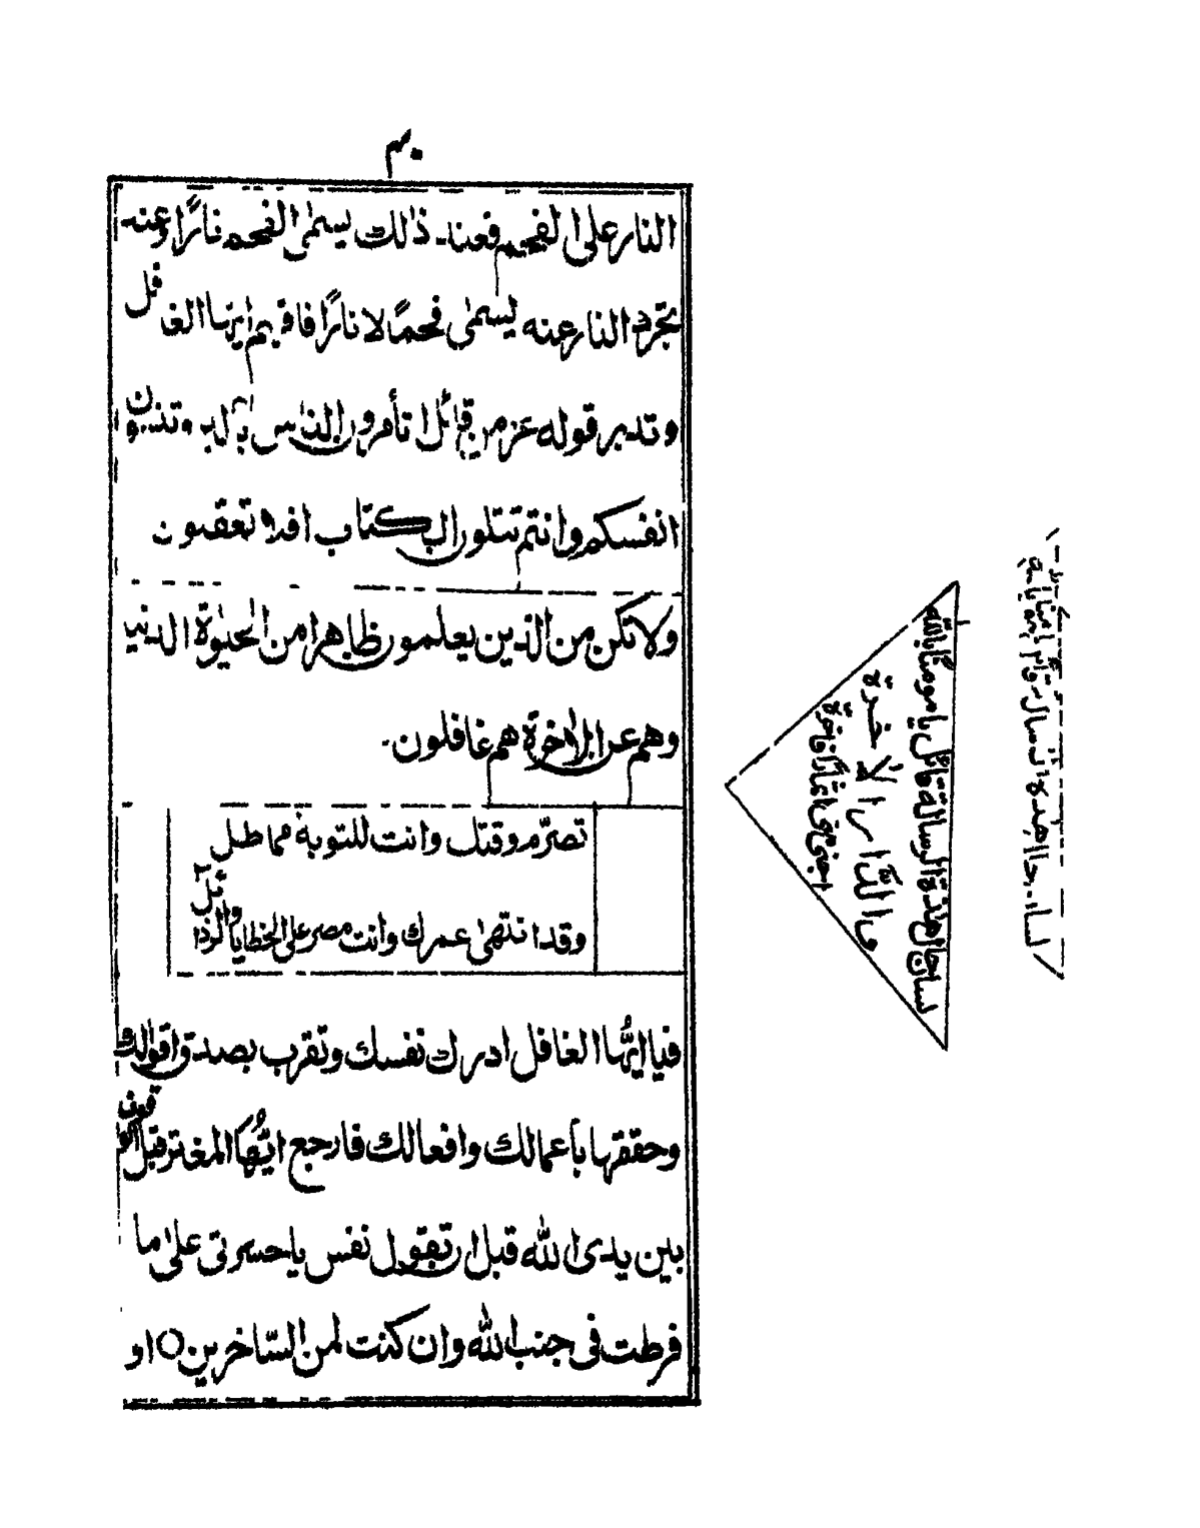 النار على الفحم فعند ذٰلك يسمّى الفحم نارًا وعند
تجرد النار عنه ليسمّى فحمًا لا نارًا فافهم ايها الغافل
وتدبر قوله عز من قائل اتأمرون الناس بالبر وتنسون
انفسكم وانتم تتلون الكتاب افلا تعقلون
ولا تكن من الذين يعلمون ظاهرا من الحيٰوة الدنيا
وهم عن الاٰخرة هم غافلون.
تصرّم وقتك وانت للتوبة مماطل
وقد انتهىٰ عمرك وانت مصر على الخطايا والرذائل
فيا ايُّها الغافل ادرك نفسك وتقرب بصدق اقوالك
وحققها بأعمالك وافعالك فارجع ايُّها المغتر قبل الوقوف
بين يدى الله قبل ان تقول نفس ياحسرتى علىٰ ما
فرطت فى جنب الله وان كنت لمن السّاخرين ○ او
لسان حال هٰذة الرسالة قائل يا مومنًا بالله
والدّار الاٰخرة